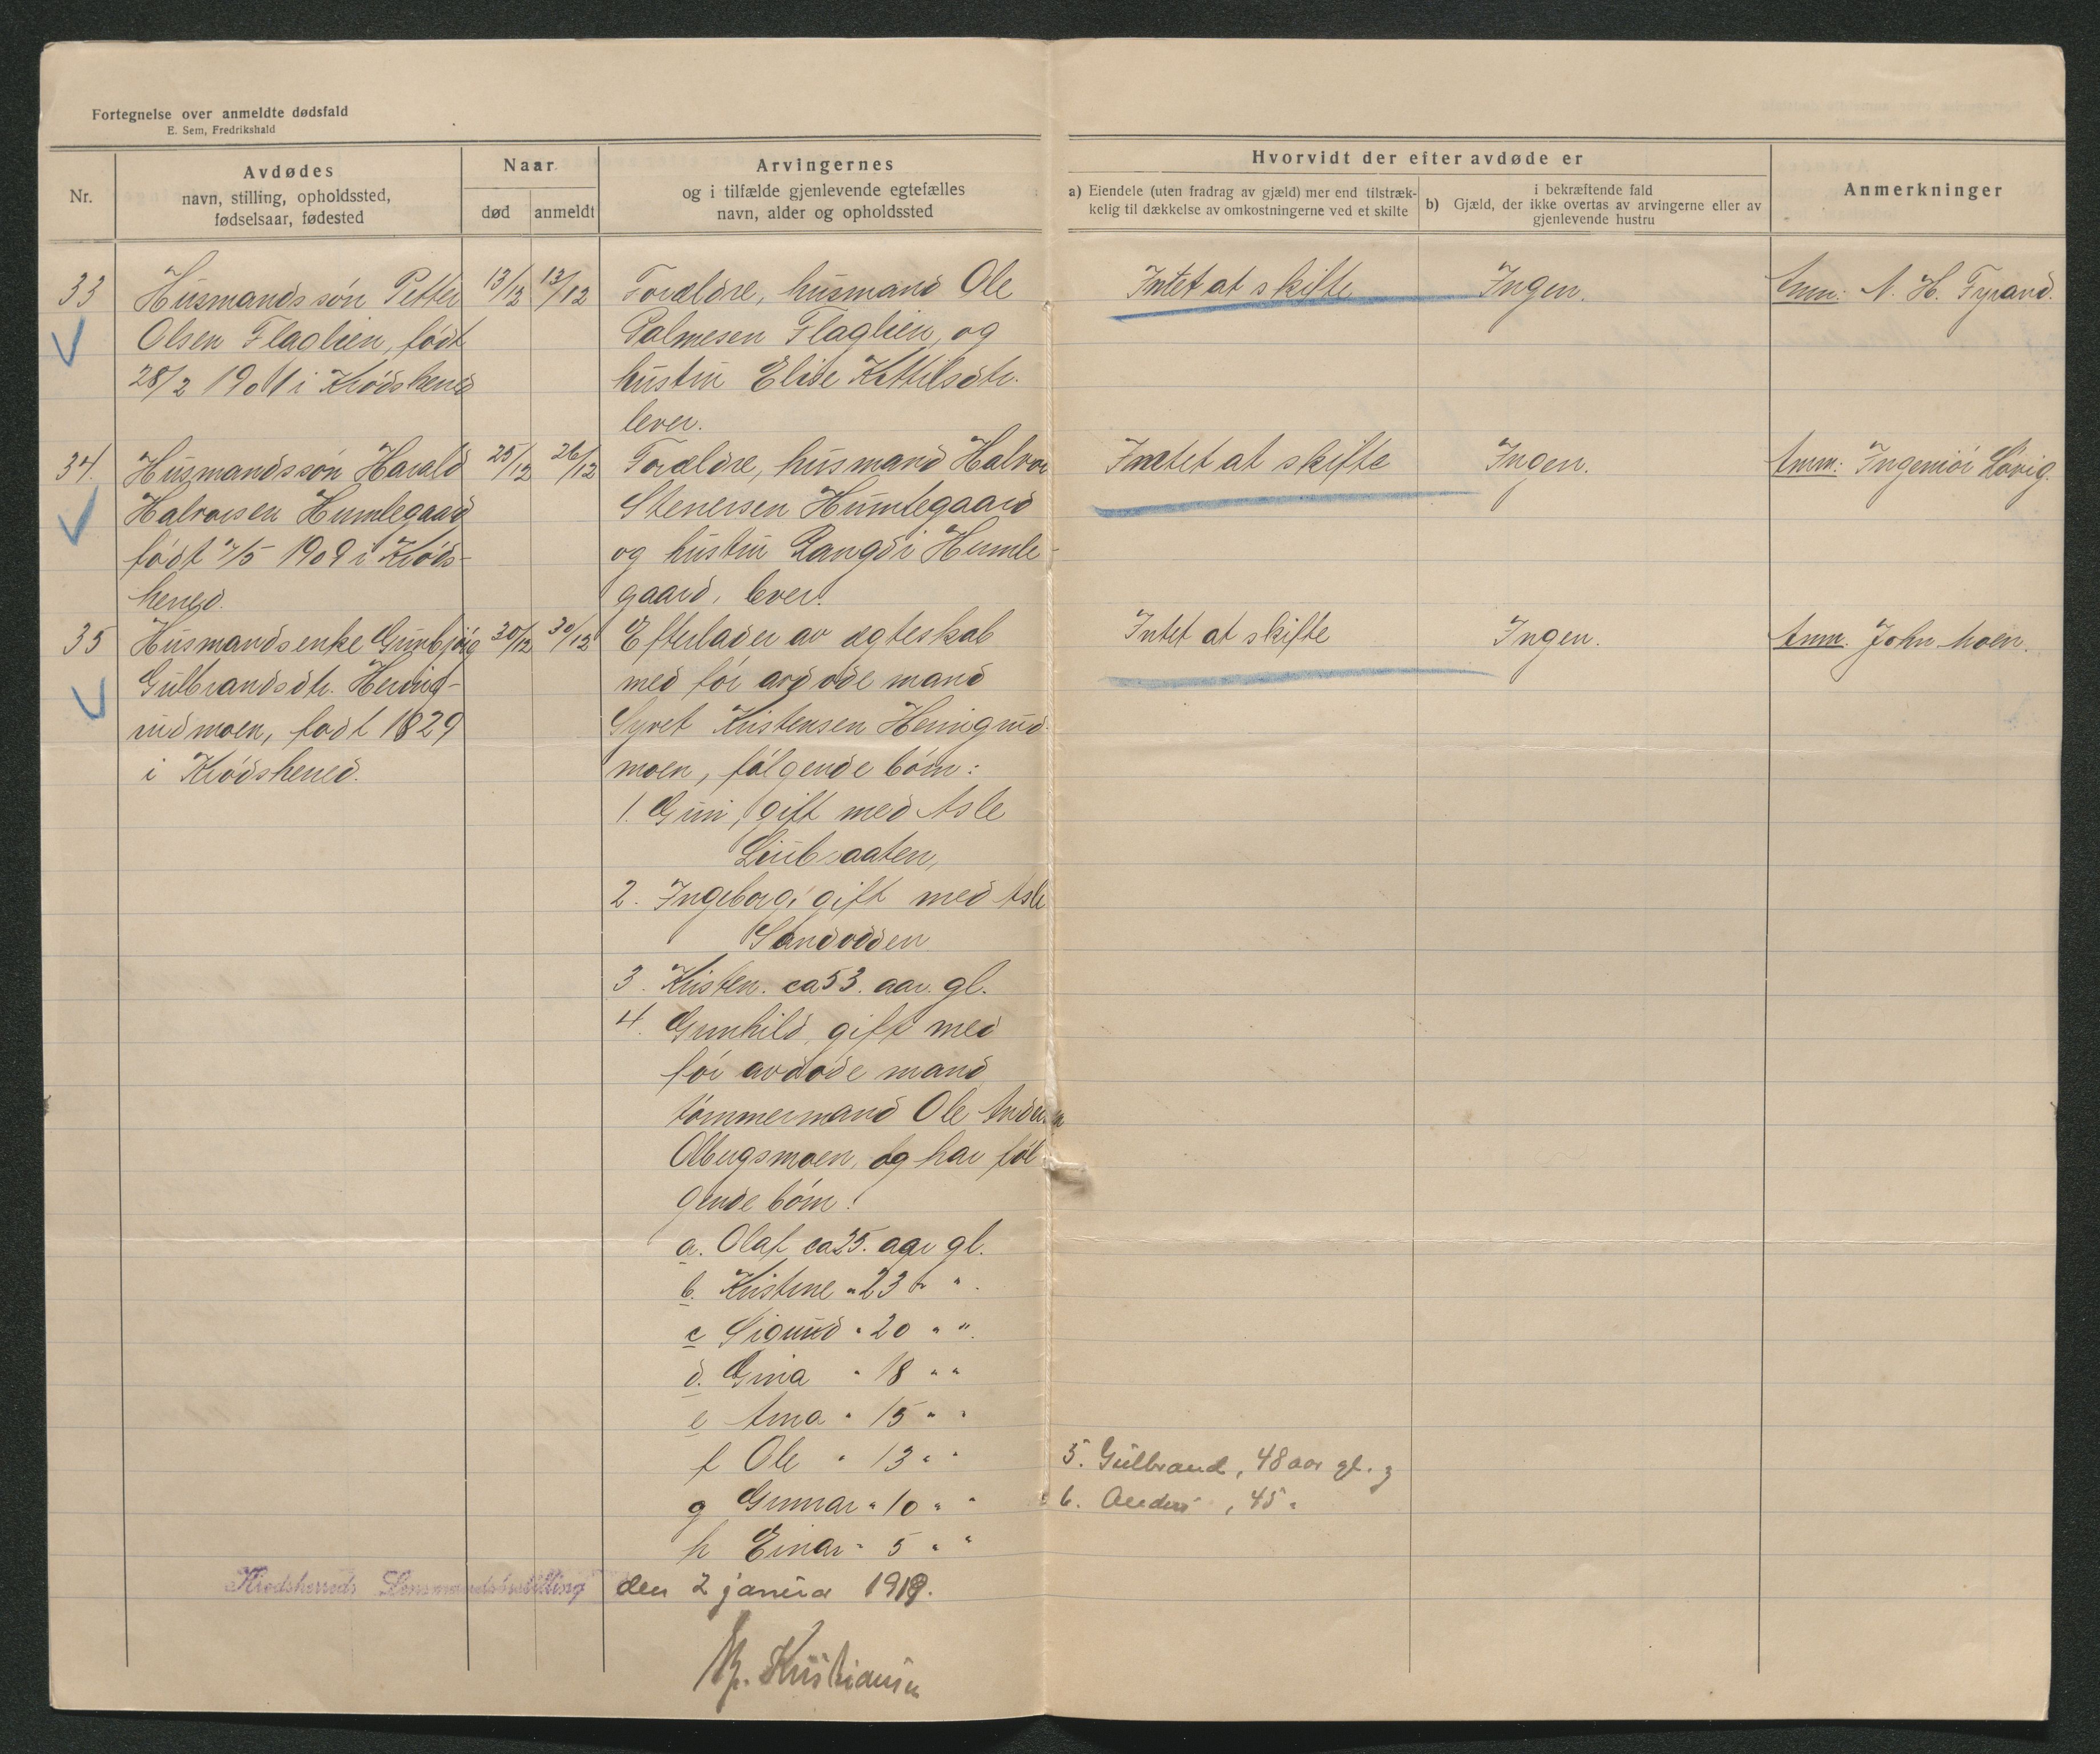 Fortegnelse over anmeldte dødsfald
E. Sem, Fredrikshald
Nr.
Avdødes
navn, stilling, opholdssted,
fødselsaar, fødested
Naar
død
anmeldt
Arvingernes
og i tilfælde gjenlevende egtefælles
navn, alder og opholdssted
Hvorvidt der efter avdøde er
a) Eiendele (uten fradrag av gjæld) mer end tilstræk-
kelig til dækkelse av omkostningerne ved et skifte
i bekræftende fald
b) Gjæld, der ikke overtas av arvingerne eller av
gjenlevende hustru
Anmerkninger
33
Husmandssøn Petter
Olsen Flaglien, født
28/2 1901 i Krødsherred
13/12
13/12
Forældre, husmand Ole
Palmesen Flaglien, og
hustru Elise Kittilsdtr.
lever.
Intet at skifte
Ingen.
Anm: N. H. Fyrand.
34.
Husmandssøn Harald
Halvorsen Humlegaard
født 7/5 1909 i Krøds-
herred.
25/12
26/12
Forældre, husmand Halvor
Stenersen Humlegaard
og hustru Rangdi Humle-
gaard, lever.
Intet at skifte
Ingen.
Anm: Ingeniør Løvig.
35
Husmandsenke Gunbjørg
Gulbrandsdtr. Hering-
rudmoen, født 1829
i Krødsherred.
30/12
30/12
Efterlader av ægteskab
med før avdøde mand
Syver Kristensen Heringrud-
moen, følgende børn:
1. Guri, gift med Asle
Ljubraaten,
2. Ingeborg, gift med Asle
Sandodden
3. Kristen. ca 53. aar. gl.
4. Gunhild, gift med
før avdøde mand
tømmermand Ole Andersen
Olbergsmoen, og har føl-
gende børn:
a. Olaf ca 25. aar gl.
b. Kristine " 23 " "
c Sigurd " 20 " "
d. Gina " 18 " "
e Anna " 15 " "
f Ole " 13 " "
g Gunnar " 10 " "
h Einar " 5 " "
5. Gulbrand, 48 aar gl. og
6. Anders, 45 "
Intet at skifte
Ingen.
Anm. John Moen.
Krødsherreds Lensmandsbestilling den 2 januar 1919.
Kristiansen